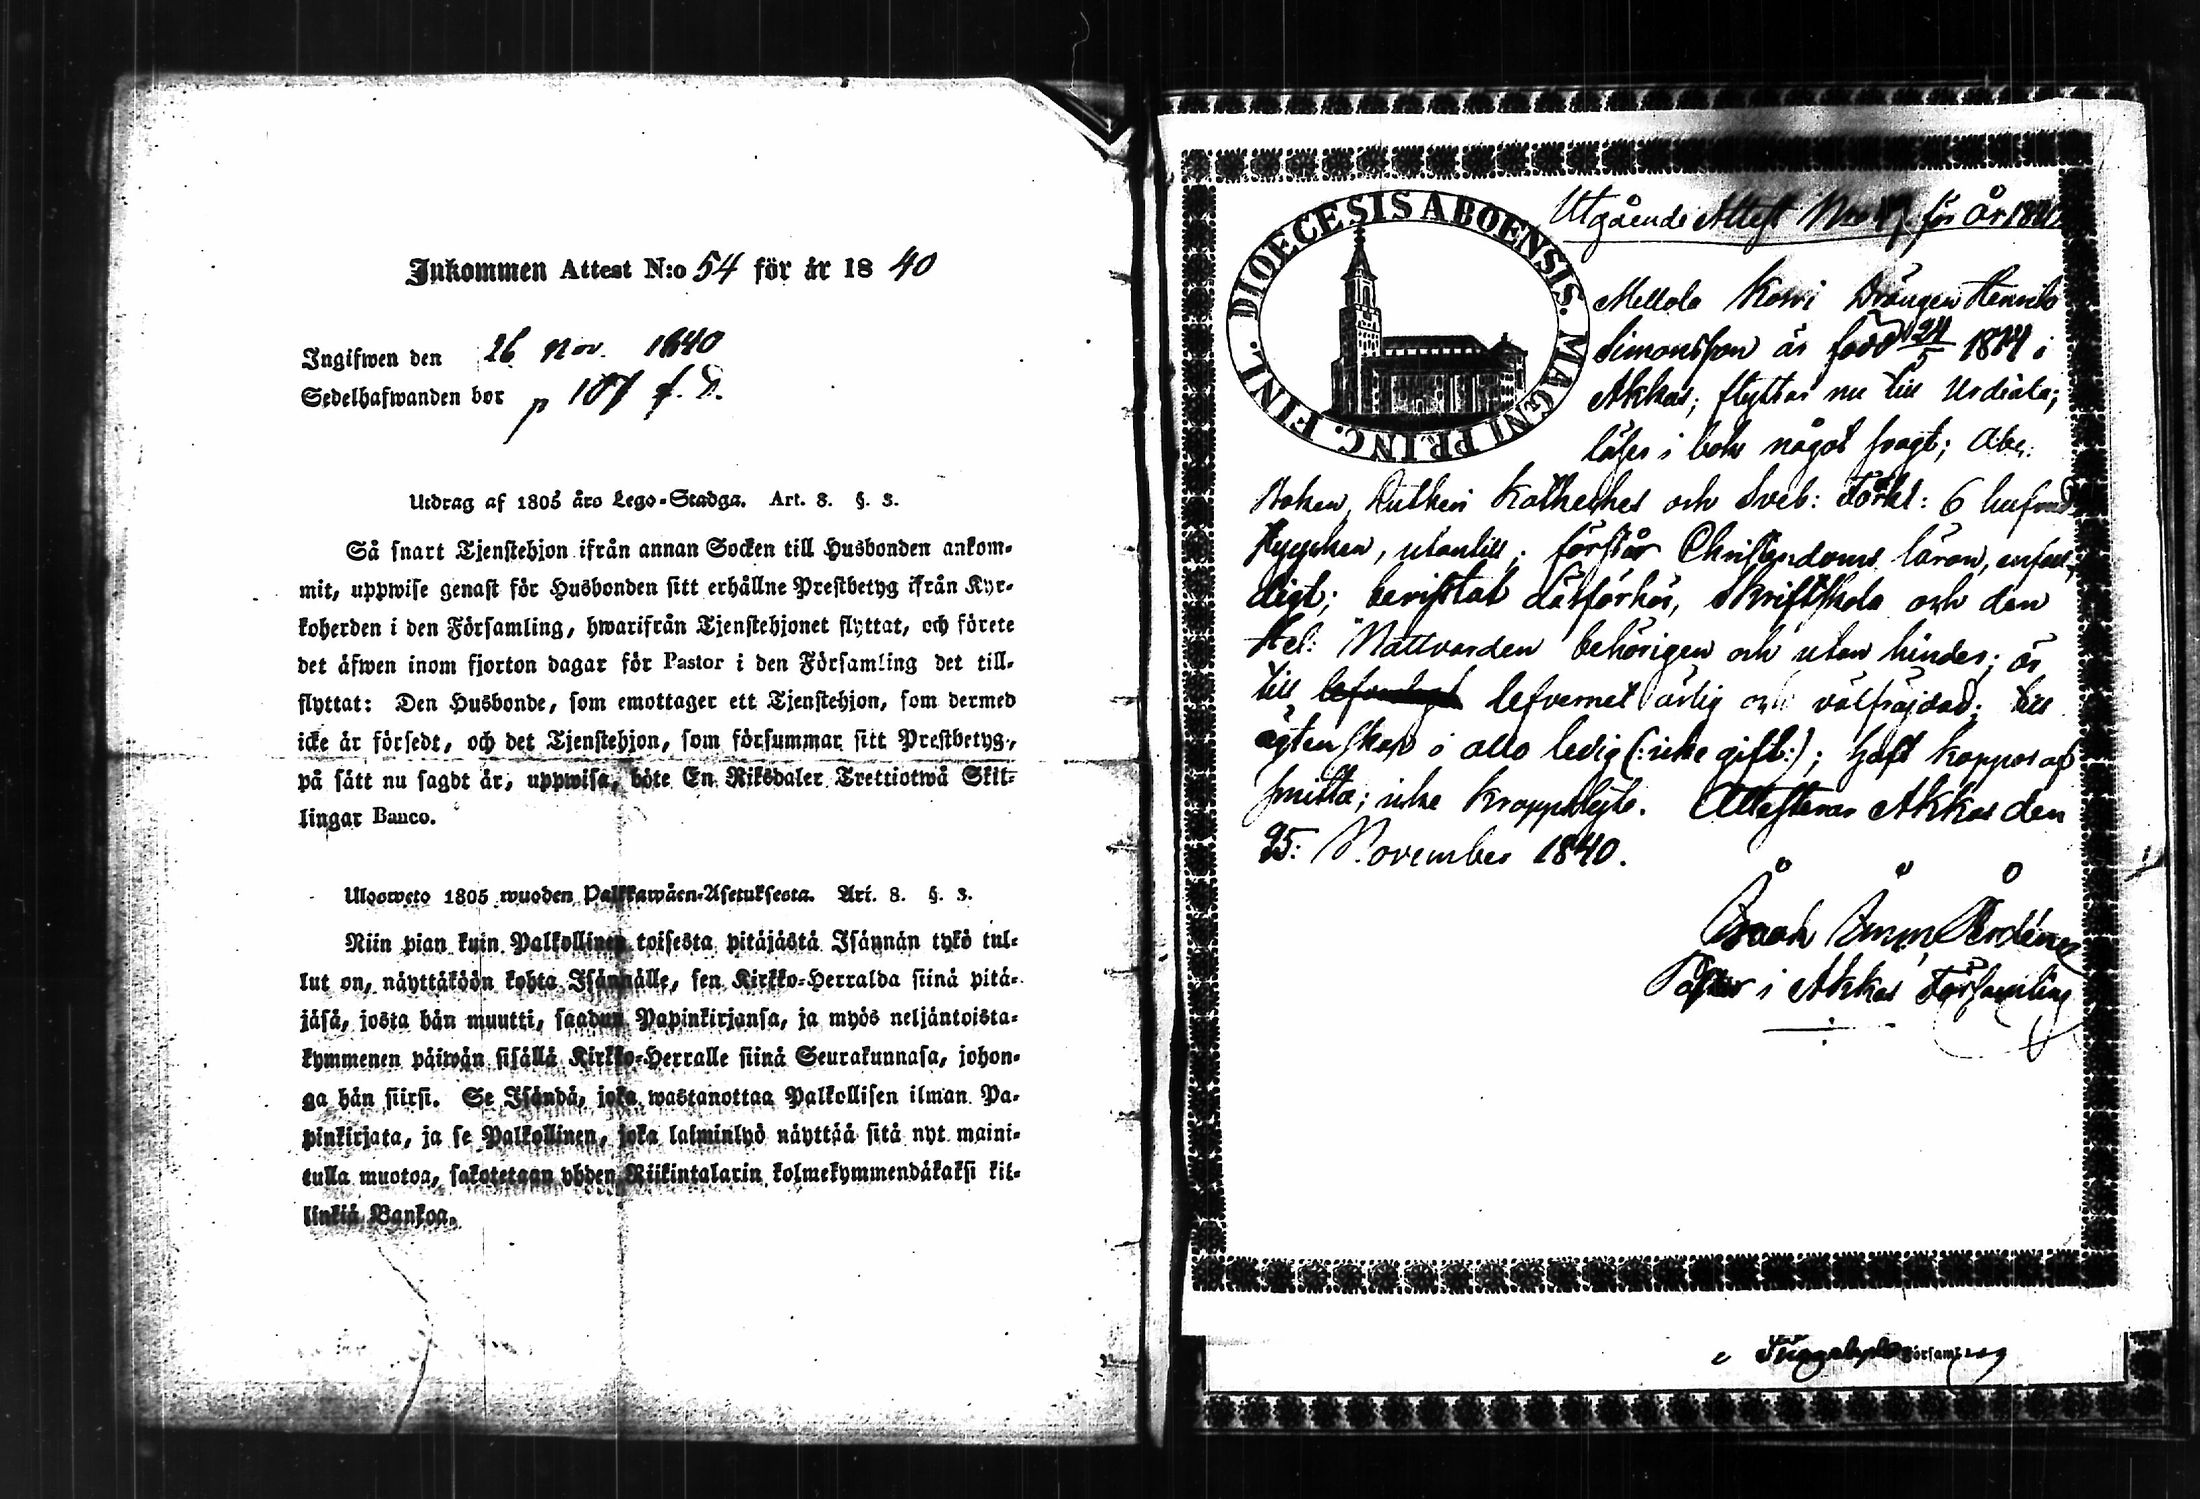 Inkommen Attest N:o 54 för år 1840
Ingifwen den 26 Nov. 1840
Sedelhafwanden bor p 107 f. D.
Utdrag af 1805 års Lego-Stadga. Art. 8. §. 3.
Så snart Tjenstehjon ifrån annan Socken till Husbonden ankom-
mit, uppwise genast för Husbonden sitt erhållne Prestbetyg ifrån Kyr-
koherden i den Församling, hwarifrån Tjenstehjonet flyttat, och förete
det äfwen inom fjorton dagar för Pastor i den Församling det till-
flyttat: Den Husbonde, som emottager ett Tjenstehjon, som dermed
icke är försedt, och det Tjenstehjon, som försummar sitt Prestbetyg,
på sätt nu sagdt är, uppwisa, böte En Riksdaler Trettiotwå Skil-
lingar Banco.
Ulosweto 1805 wuoden Palkkawäen-Asetuksesta. Art. 8. §. 3.
Niin pian kuin Palkollinen toisesta pitäjästä Isännän tykö tul-
lut on, näyttäköön kohta Isännälle, sen Kirkko-Herralda siinä pitä-
jäsä, josta hän muutti, saadun Papinkirjansa, ja myös neljäntoista-
kymmenen päiwän sisällä Kirkko-Herralle siinä Seurakunnasa, johon-
ga hän siirsi. Se Isändä, joka wastanottaa Palkollisen ilman Pa-
pinkirjata, ja se Palkollinen, joka laiminlyö näyttää sitä nyt maini-
tulla muotoa, sakotetaan yhden Riikintalarin kolmekymmendäkaksi kil-
linkiä Bankoa.
DIOECESIS ABOENSIS. MAGNI PRINC. FINL.
Utgående Attest Nro för År 1840
Mellola Koski Drängen Henrik
Simonsson är född 24/5 18 4 i
Akkas; flyttar nu till Urdiala;
läser i bok något svagt; Abc.
Boken, Lutheri Katheches och Sveb: Förkl: 6 hufvud
stycken, utantill; förstår Christendoms läran, enfal-
digt; bevistat läsförhör, Skriftskola och den
Hel: Nattvarden behörigen och utan hinder; är
till lefvernet ärlig och välfräjdad; till
ägtenskap i allo ledig (: icke gift:); haft koppor af
smitta; icke kroppslyte. Attesteras Akkas den
25: November 1840.
Isaak
Pastor i Akkas Församling
Församling